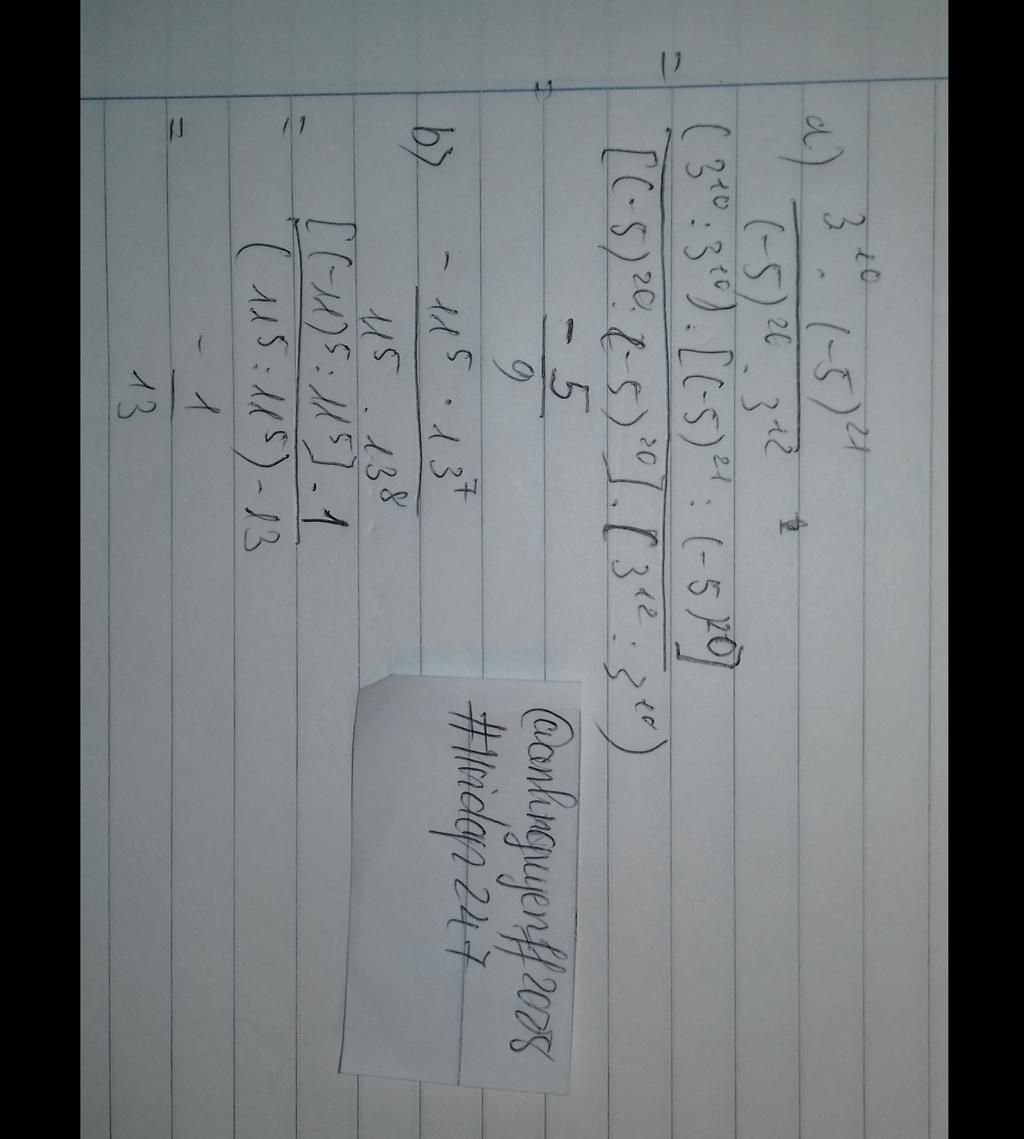 a) 3^10 . (-5)^21
(-5)^20 . 3^12
= (3^10 : 3^10) . [(-5)^21 : (-5)^20]
[(-5)^20 : (-5)^20] . [3^12 : 3^10)
= -5
9
b) -11^5 . 13^7
11^5 . 13^8
= [(-11)^5 : 11^5] . 1
(11^5 : 11^5) - 13
= -1
13
@anhnguyenff2008
#Hoidap247